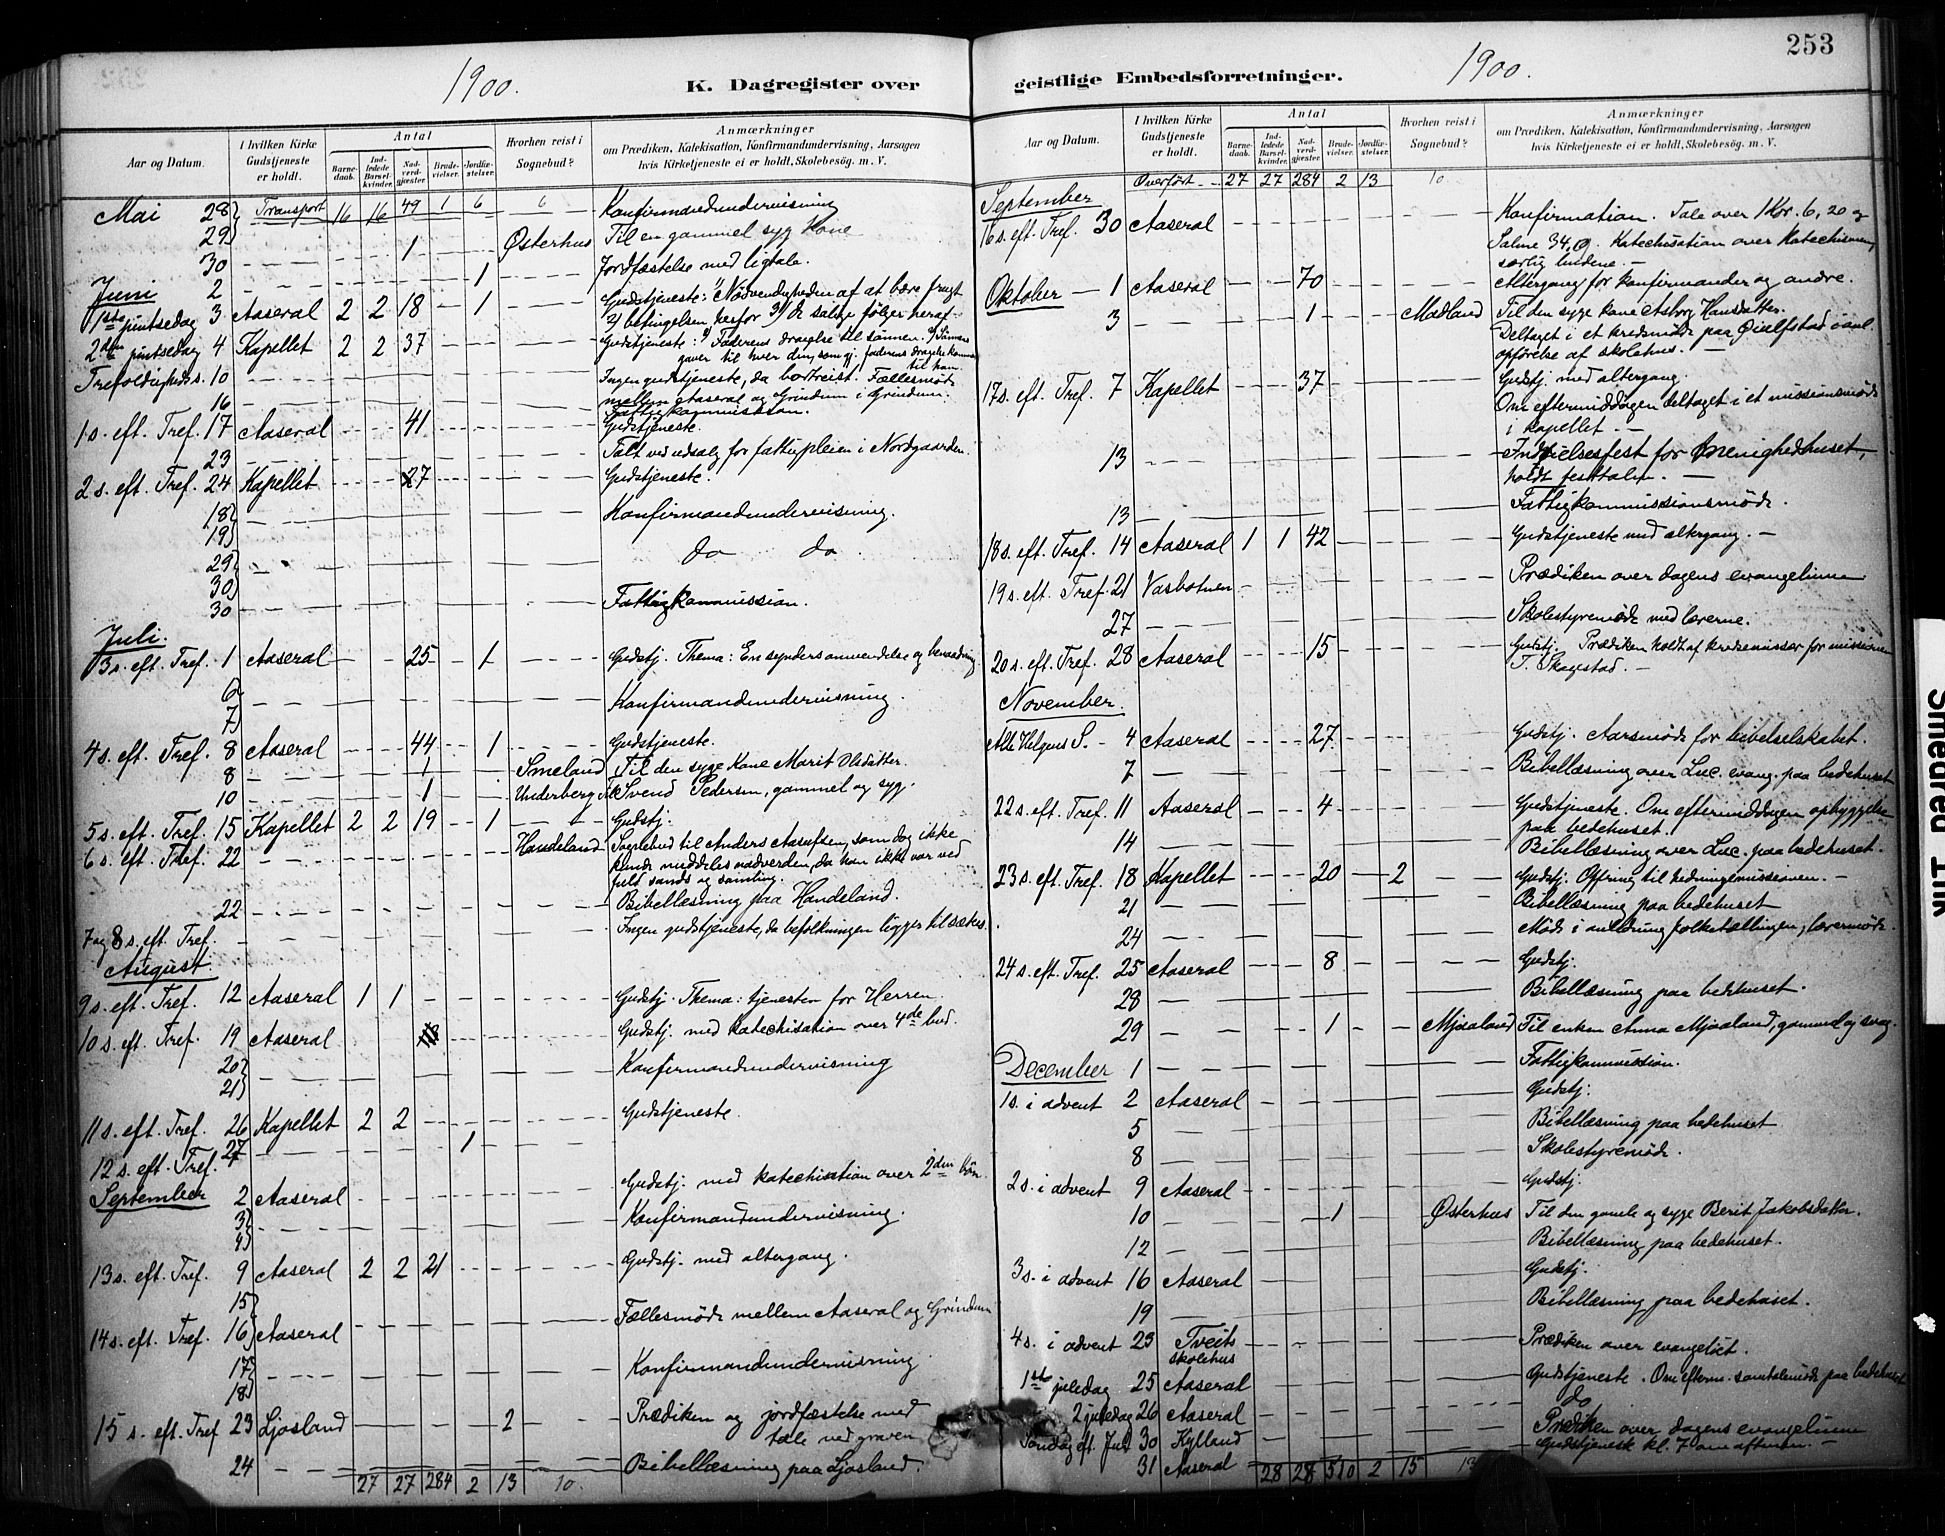 1900.
K. Dagregister over
Aar og Datum.
I hvilken Kirke Gudstjeneste er holdt.
Antal
Barne-daab.
Ind-ledede Barsel-kvinder.
Nad-verd-gjæster.
Brude-vielser.
Jordfæ-stelser.
Hvorhen reist i Sognebud?
Anmærkninger
om Prædiken, Katekisation, Konfirmandundervisning, Aarsagen
hvis Kirketjeneste ei er holdt, Skolebesøg. m. V.
Mai 28 Transport 16 16 49 1 6 6 Konfirmandundervisning
29 1 Østerhus Til en gammel syg Kone
30
Juni 2 1 Jordfæstelse med ligtale.
1ste pintsedag 3 Aaseral 2 2 18 1 Gudstjeneste: 1) Nødvendigheden af at bære frugt
2) betingelsen herfor 3) de salige følger heraf.
2den pintsedag 4 Kapellet 2 2 37 Gudstjeneste: 1) Faderens dragelse til sønnen. 2) Sønnens
gaver til hver den, som gj. faderens dragelse kommer
til ham
Trefoldigheds. 10 Ingen gudstjeneste, da bortreist. Fællesmøde
mellem Aaseral og Grindum i Grindum.
16 Fattigkommission.
1 s. eft. Tref. 17 Aaseral 41 Gudstjeneste.
23 Talt ved udsalg for fattigpleien i Nordgaarden.
2 s. eft. Tref. 24 Kapellet 27 Gudstjeneste.
18
19 Konfirmandundervisning.
29
30 do do
30 Fattigkommission.
Juli.
3 s. eft. Tref. 1 Aaseral 25 1 Gudstj. Thema: En synders omvendelse og benaadning
6
7 Konfirmandundervisning.
4 s. eft. Tref. 8 Aaseral 44 1 Gudstjeneste.
8 1 Smeland Til den syge Kone Marit Olsdatter.
10 1 Underberg Til Svend Pedersen, gammel og syg.
5 s. eft. Tref. 15 Kapellet 2 2 19 1 Gudstj.
6 s. eft. Tref. 22 Haudeland Sognebud til Anders Aasulfsen, som dog ikke
kunde meddeles nadverden, da han ikke var ved
fuld sands og samling.
22 Bibellæsning paa Haudeland.
7 og 8 s. eft. Tref. Ingen gudstjeneste, da befolkningen ligger til sæters.
August
9 s. eft. Tref. 12 Aaseral 1 1 Gudstj. Thema: tjenesten for Herren.
10 s. eft. Tref. 19 Aaseral Gudstj. med katechisation over 4de bud.
20
21 Konfirmandundervisning
11 s. eft. Tref. 26 Kapellet 2 2 Gudstjeneste.
27 1
12 s. eft. Tref.
September 2 Aaseral Gudstj. med katechisation over 2den bøn.
3
4 Konfirmandundervisning.
13 s. eft. Tref. 9 Aaseral 2 2 21 Gudstj. med altergang.
15
14 s. eft. Tref. 16 Aaseral Fællesmøde mellem Aaseral og Grindum
17
18 Konfirmandundervisning.
15 s. eft. Tref 23 Ljosland 2 Prædiken og jordfæstelse med
tale ved graven
24 Bibellæsning paa Ljosland.
27 27 284 2 13 10.
253
geistlige Embedsforretninger.
1900.
Aar og Datum.
I hvilken Kirke Gudstjeneste er holdt.
Antal
Barne-daab.
Ind-ledede Barsel-kvinder.
Nad-verd-gjæster.
Brude-vielser.
Jordfæ-stelser.
Hvorhen reist i Sognebud?
Anmærkninger
om Prædiken, Katekisation, Konfirmandundervisning, Aarsagen
hvis Kirketjeneste ei er holdt, Skolebesøg. m. V.
Overført 27 27 284 2 13 10
September
16 s. eft. Tref. 30 Aaseral Konfirmation. Tale over 1 Kor. 6, 20 og
Salme 34, 9. Katechisation over Katechismen,
særlig budene.
Oktober 1 Aaseral 70 Altergang for konfirmander og andre.
3 1 Madland Til den syge kone Asborg Hansdatter.
Deltaget i et kredsmøde paa i anl.
opførelse af skolehus.
17 s. eft. Tref. 7 Kapellet 37 Gudstj. med altergang.
Om eftermiddagen deltaget i et missionsmøde
i kapellet.
13 Indvielsesfest for menighedshuset,
holdt festtalen.
13 Fattigkommissionsmøde.
18 s. eft. Tref. 14 Aaseral 1 1 42 Gudstjeneste med altergang.
19 s. eft. Tref. 21 Vasbotnen Prædiken over dagens evangelium
27 Skolestyremøde med lærerne.
20 s. eft. Tref. 28 Aaseral 15 Gudstj. Prædiken holdt af kredsmissær for missionen
T. Skagestad.
November.
Alle Helgens S. 4 Aaseral 27 Gudstj. Aarsmøde for bibelselskabet.
7 Bibellæsning over Luc. evang. paa bedehuset
22 s. eft. Tref. 11 Aaseral 4 Gudstjeneste. Om eftermiddagen opbyggelse
paa bedehuset.
14 Bibellæsning over Luc. paa bedehuset.
23 s. eft. Tref. 18 Kapellet 20 2 Gudstj. Offring til hedningemissionen.
21 Bibellæsning paa bedehuset
24 Møde i anledning folketællingen, lærermøde.
24 s. eft. Tref. 25 Aaseral 8 Gudstj.
28 Bibellæsning paa bedehuset.
29 1 Mjaaland Til enken Anna Mjaaland, gammel og svag.
December 1 Fattigkommission.
1 s. i advent 2 Aaseral Gudstj.
5 Bibellæsning paa bedehuset
8 Skolestyremøde.
2 s. i advent 9 Aaseral Gudstj.
10 1 Østerhus Til den gamle og syge Berit Jakobsdatter.
12 Bibellæsning paa bedehuset.
3 s. i advent 16 Aaseral Gudstj.
19 Bibellæsning paa bedehuset.
4 s. i advent 23 Tveits skolehus Prædiken over evangeliet.
1ste juledag 25 Aaseral Gudstjeneste. Om efterm. samtalemøde paa bedehuset
2 juledag 26 Aaseral do
Søndag eft. Jul 30 Kylland Prædiken over dagens evangelium
31 Aaseral Gudstjeneste kl. 7 om aftenen.
28 28 510 2 15 13
Smedred Ink